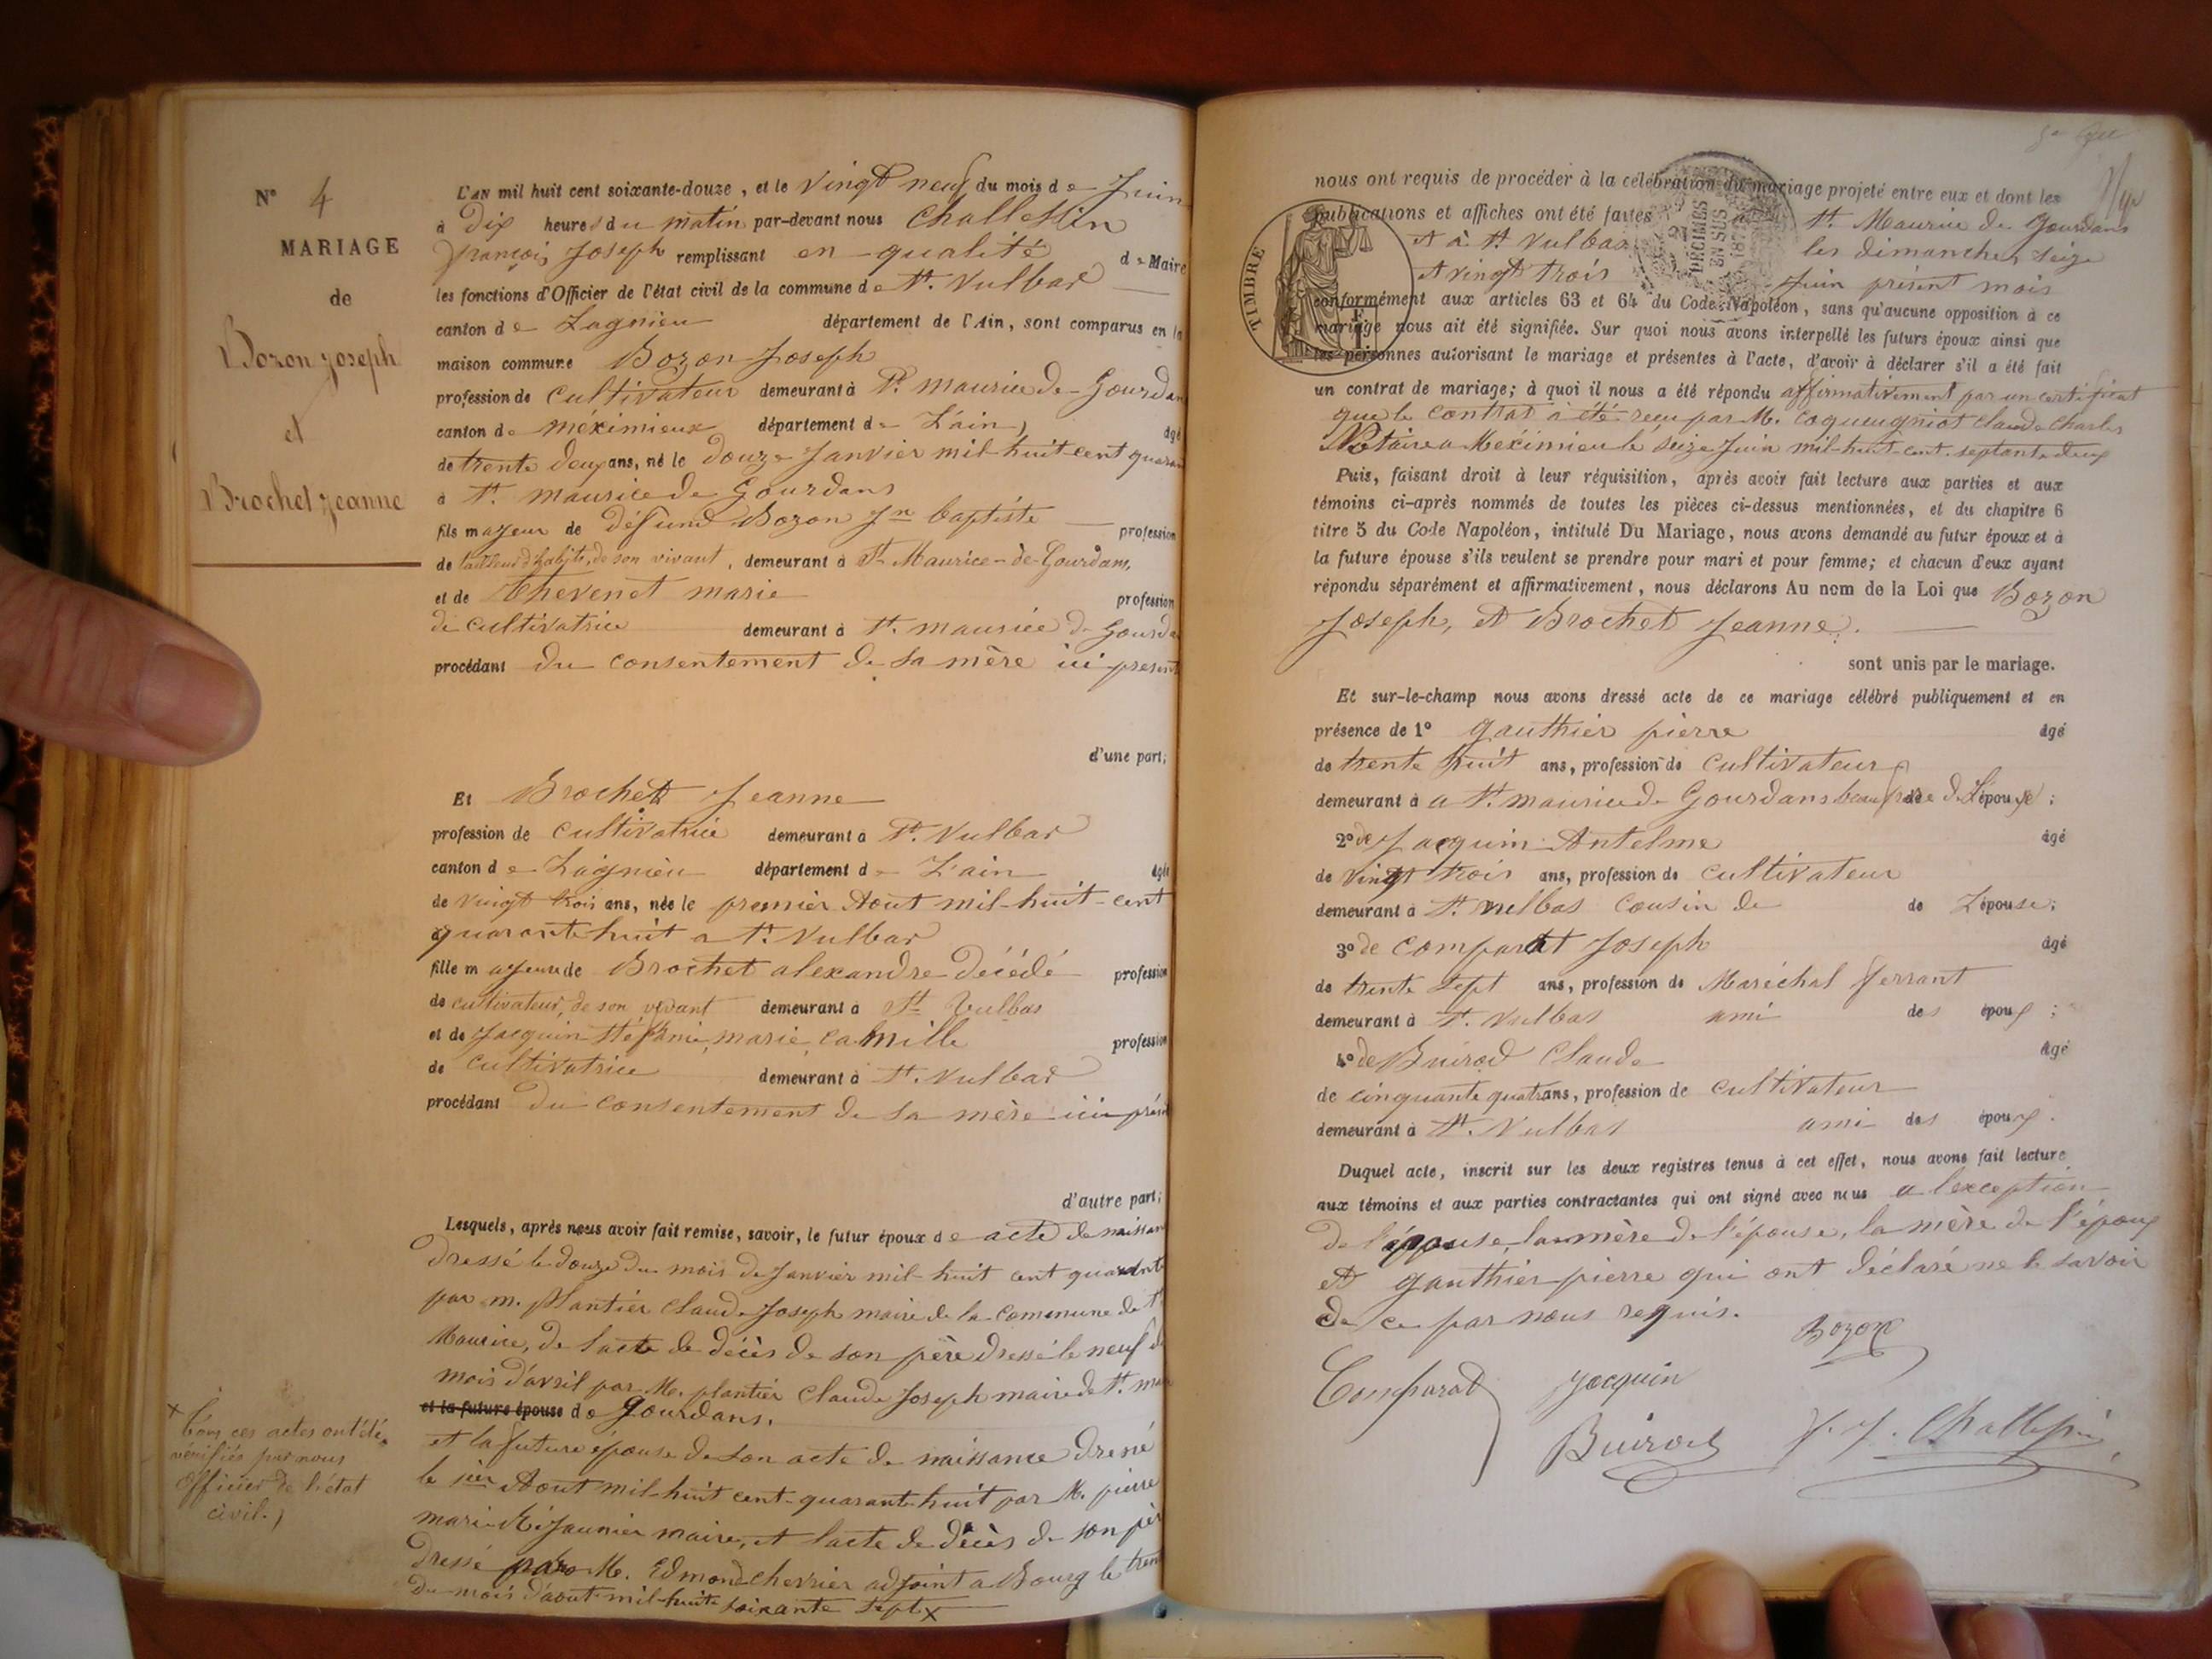 N° 4
MARIAGE
de
Bozon Joseph
et
Brochet Jeanne
L'AN mil huit cent soixante-douze, et le vingt neuf du mois de Juin
à dix heures du matin par-devant nous Challessin
françois Joseph remplissant en qualité de Maire
les fonctions d'Officier de l'état civil de la commune de St. Vulbas
canton de Lagnieu département de l'Ain, sont comparus en la
maison commune Bozon Joseph
profession de cultivateur demeurant à St. maurice de Gourdan
canton de méximieux département de L'ain, âgé
de trente deux ans, né le douze Janvier mil huit cent quaran
à St. maurice de Gourdans
fils majeur de défunt Bozon Jn baptiste profession
de tailleur d'habits, de son vivant, demeurant à St Maurice-de-Gourdans,
et de Thevenot marie profession
de cultivatrice demeurant à St. maurice de Gourda
procédant du consentement de sa mère ici present
d'une part;
Et Brochet Jeanne
profession de cultivatrice demeurant à St. Vulbas
canton de Lagnieu département de L'ain âgée
de vingt trois ans, née le premier Aout mil-huit-cent
quarante huit a St. Vulbas
fille majeure de Brochet alexandre décédé profession
de cultivateur, de son vivant demeurant à St Vulbas
et de Jacquin Stéfanie marie camille profession
de cultivatrice demeurant à St. Vulbas
procédant du consentement de sa mère ici prése
d'autre part;
Lesquels, après nous avoir fait remise, savoir, le futur époux de acte de naissan
dressé le douze du mois de Janvier mil-huit cent quarante
par m. Plantier Claude Joseph maire de la commune de St
Maurice, de l'acte de décès de son père dressé le neuf d
mois d'avril par M. plantier Claude Joseph maire de St. ma
et la future épouse de Gourdans.
et la future épouse de son acte de naissance dressé
le 1er Aout mil-huit cent-quarante huit par M. pierre
marie maire, et l'acte de décès de son pèr
dressé par M. Edmond chevrier adjoint a Bourg le tren
du mois d'aout mil-huit soixante sept x
x Tous ces actes ont été
vérifiés par nous
Officier de l'état
civil.
nous ont requis de procéder à la célébration du mariage projeté entre eux et dont les
publications et affiches ont été faites à St. Maurice de Gourdans
et à St Vulbas les dimanches seize
et vingt trois Juin présent mois
TIMBRE
DÉCIMES
EN SUS
conformément aux articles 63 et 64 du Code Napoléon, sans qu'aucune opposition à ce
mariage nous ait été signifiée. Sur quoi nous avons interpellé les futurs époux ainsi que
les personnes autorisant le mariage et présentes à l'acte, d'avoir à déclarer s'il a été fait
un contrat de mariage; à quoi il nous a été répondu affirmativement par un certificat
que le contrat a été reçu par M. Coqueugniot Claude Charles
Notaire a Meximieu le seize Juin mil-huit-cent-septante deux
Puis, faisant droit à leur réquisition, après avoir fait lecture aux parties et aux
témoins ci-après nommés de toutes les pièces ci-dessus mentionnées, et du chapitre 6
titre 5 du Code Napoléon, intitulé Du Mariage, nous avons demandé au futur époux et à
la future épouse s'ils veulent se prendre pour mari et pour femme; et chacun d'eux ayant
répondu séparément et affirmativement, nous déclarons Au nom de la Loi que Bozon
Joseph, et Brochet Jeanne.
sont unis par le mariage.
Et sur-le-champ nous avons dressé acte de ce mariage célébré publiquement et en
présence de 1° Gauthier pierre âgé
de trente huit ans, profession de cultivateur
demeurant à a St. maurice de Gourdans beau frère de L'épouse;
2° de Jacquin Antelme âgé
de vingt trois ans, profession de cultivateur
demeurant à St. vulbas cousin de de L'épouse;
3° de Comparat Joseph âgé
de trente sept ans, profession de Maréchal ferrant
demeurant à St. Vulbas ami des époux;
4° de Buirod Claude âgé
de cinquante quatre ans, profession de cultivateur
demeurant à St. Vulbas ami des époux.
Duquel acte, inscrit sur les deux registres tenus à cet effet, nous avons fait lecture
aux témoins et aux parties contractantes qui ont signé avec nous a l'exception
de l'épouse, la mère de l'épouse, la mère de l'époux
et Gauthier pierre qui ont déclaré ne le savoir
de ce par nous requis.
Bozon
Comparat Jacquin
Buirod